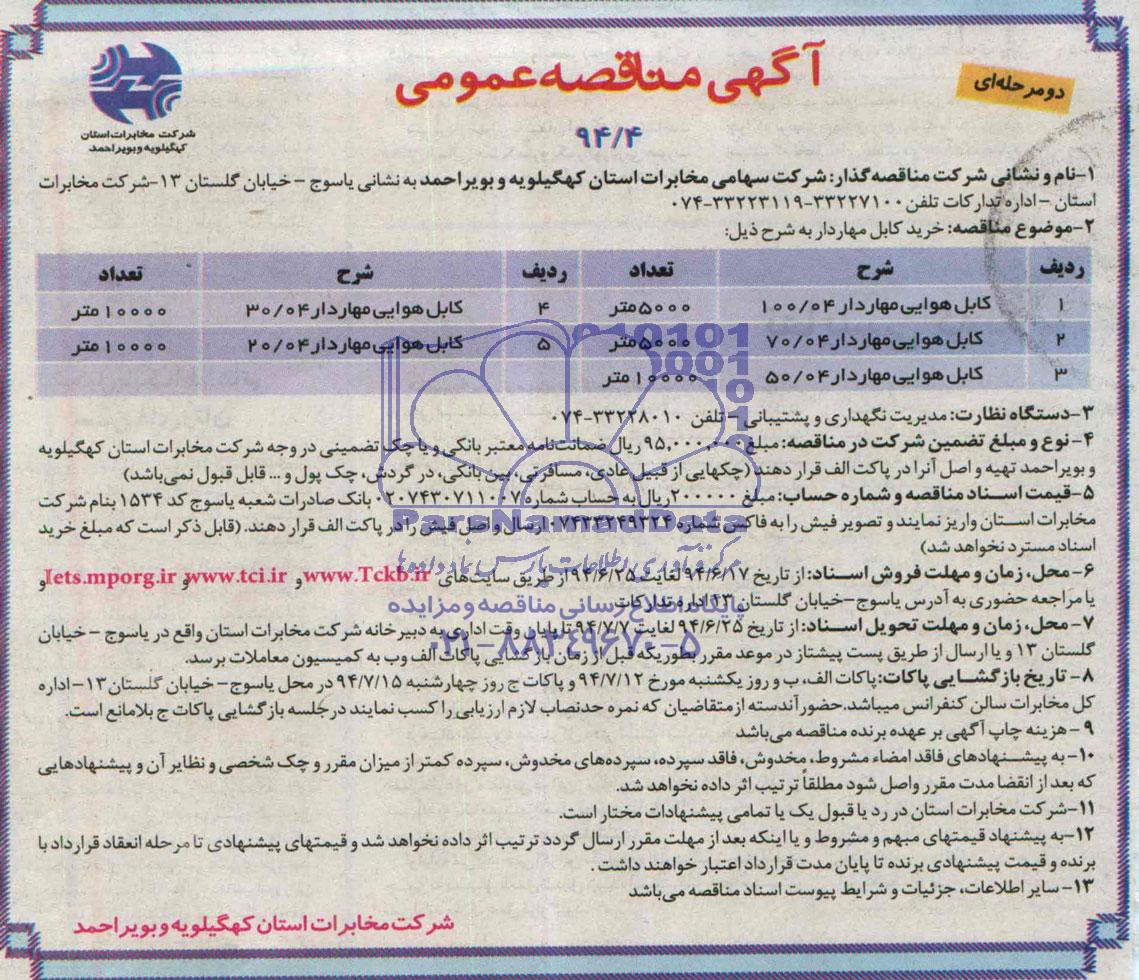 آگهی مناقصه عمومی
دو مرحله‌ای
۹۴/۴
شرکت مخابرات استان
کهگیلویه و بویراحمد
۱-نام و نشانی شرکت مناقصه گذار: شرکت سهامی مخابرات استان کهگیلویه و بویراحمد به نشانی یاسوج - خیابان گلستان ۱۳-شرکت مخابرات
استان - اداره تدارکات تلفن ۳۳۲۲۷۱۰۰-۳۳۲۲۳۱۱۹-۰۷۴
۲-موضوع مناقصه: خرید کابل مهاردار به شرح ذیل:
ردیف شرح تعداد ردیف شرح تعداد
۱ کابل هوایی مهاردار ۱۰۰/۰۴ ۵۰۰۰متر ۴ کابل هوایی مهاردار ۳۰/۰۴ ۱۰۰۰۰متر
۲ کابل هوایی مهاردار ۷۰/۰۴ ۵۰۰۰متر ۵ کابل هوایی مهاردار ۲۰/۰۴ ۱۰۰۰۰متر
۳ کابل هوایی مهاردار ۵۰/۰۴ ۱۰۰۰۰متر
۳-دستگاه نظارت: مدیریت نگهداری و پشتیبانی - تلفن ۳۳۲۲۸۰۱۰-۰۷۴
۴-نوع و مبلغ تضمین شرکت در مناقصه: مبلغ ۹۵,۰۰۰,۰۰۰ ریال ضمانت‌نامه معتبر بانکی و یا چک تضمینی در وجه شرکت مخابرات استان کهگیلویه
و بویراحمد تهیه و اصل آنرا در پاکت الف قرار دهند (چکهایی از قبیل عادی، مسافرتی، بین بانکی، در گردش، چک پول و ... قابل قبول نمی‌باشد)
۵-قیمت اسناد مناقصه و شماره حساب: مبلغ ۲۰۰۰۰۰ ریال به حساب شماره ۰۲۰۷۴۳۰۷۱۱۰۰۷ بانک صادرات شعبه یاسوج کد ۱۵۳۴ بنام شرکت
مخابرات استان واریز نمایند و تصویر فیش را به فاکس شماره ۰۷۴۳۳۲۴۹۳۲۴ ارسال و اصل فیش را در پاکت الف قرار دهند. (قابل ذکر است که مبلغ خرید
اسناد مسترد نخواهد شد)
۶-محل، زمان و مهلت فروش اسناد: از تاریخ ۹۴/۶/۱۷ لغایت ۹۴/۶/۲۵ از طریق سایت‌های www.Tckb.ir و www.tci.ir و Iets.mporg.ir و
یا مراجعه حضوری به آدرس یاسوج-خیابان گلستان ۱۳ اداره تدارکات
۷-محل، زمان و مهلت تحویل اسناد: از تاریخ ۹۴/۶/۲۵ لغایت ۹۴/۷/۷ تا پایان وقت اداری به دبیرخانه شرکت مخابرات استان واقع در یاسوج - خیابان
گلستان ۱۳ و یا ارسال از طریق پست پیشتاز در موعد مقرر بطوریکه قبل از زمان بازگشایی پاکات الف و ب به کمیسیون معاملات برسد.
۸- تاریخ بازگشایی پاکات: پاکات الف، ب و روز یکشنبه مورخ ۹۴/۷/۱۲ و پاکات ج روز چهارشنبه ۹۴/۷/۱۵ در محل یاسوج- خیابان گلستان ۱۳-اداره
کل مخابرات سالن کنفرانس میباشد. حضور آندسته از متقاضیان که نمره حدنصاب لازم ارزیابی را کسب نمایند در جلسه بازگشایی پاکات ج بلامانع است.
۹- هزینه چاپ آگهی بر عهده برنده مناقصه می‌باشد
۱۰-به پیشنهادهای فاقد امضاء مشروط، مخدوش، فاقد سپرده، سپرده‌های مخدوش، سپرده کمتر از میزان مقرر و چک شخصی و نظایر آن و پیشنهادهایی
که بعد از انقضا مدت مقرر واصل شود مطلقاً ترتیب اثر داده نخواهد شد.
۱۱-شرکت مخابرات استان در رد یا قبول یک یا تمامی پیشنهادات مختار است.
۱۲-به پیشنهاد قیمتهای مبهم و مشروط و یا اینکه بعد از مهلت مقرر ارسال گردد ترتیب اثر داده نخواهد شد و قیمتهای پیشنهادی تا مرحله انعقاد قرارداد با
برنده و قیمت پیشنهادی برنده تا پایان مدت قرارداد اعتبار خواهند داشت .
۱۳- سایر اطلاعات، جزئیات و شرایط پیوست اسناد مناقصه می‌باشد
شرکت مخابرات استان کهگیلویه و بویراحمد
ParsNamadData
مرکز فرآوری اطلاعات پارس نماد داده‌ها
پایگاه اطلاع رسانی مناقصه و مزایده
۰۲۱-۸۸۳۴۹۶۷۰-۵